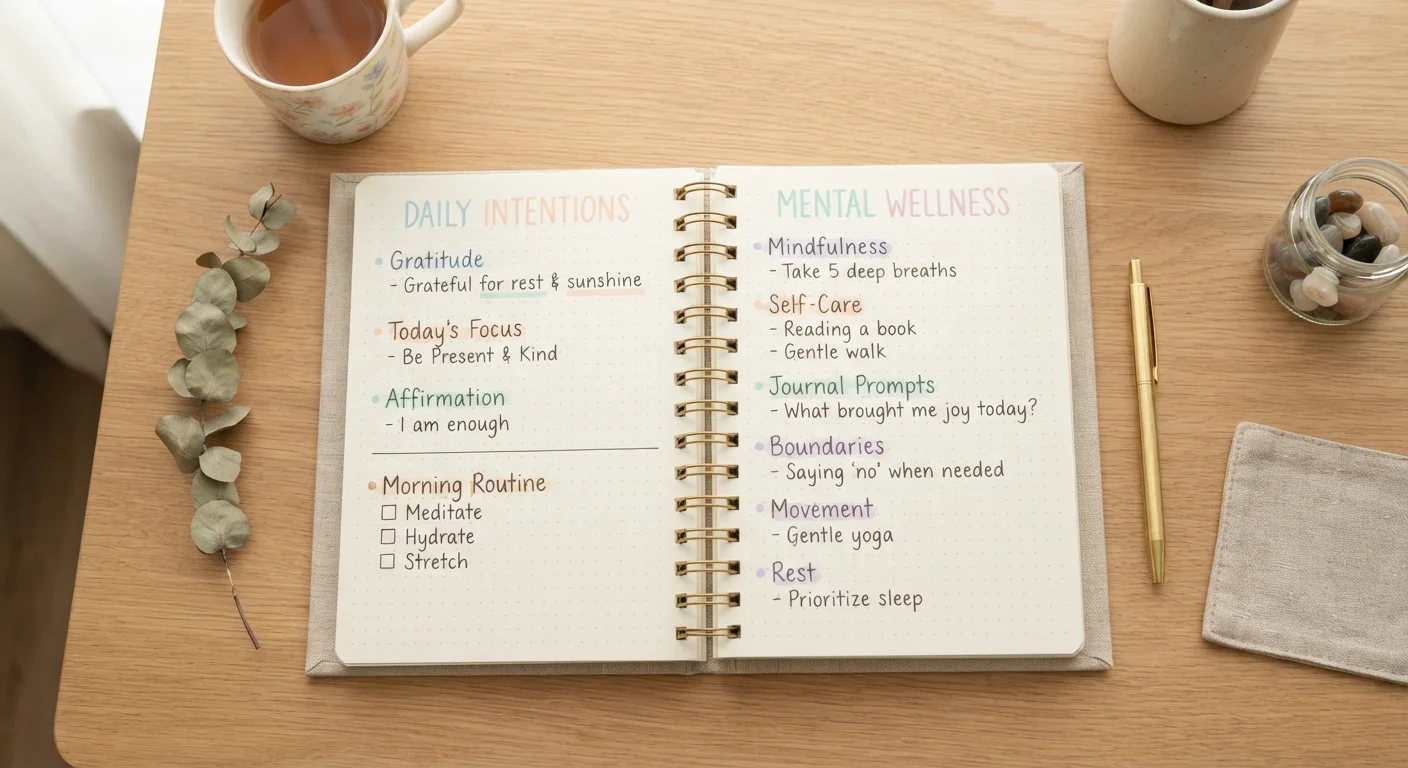 DAILY INTENTIONS
Gratitude
- Grateful for rest & sunshine
Today's Focus
- Be Present & Kind
Affirmation
- I am enough
Morning Routine
☐ Meditate
☐ Hydrate
☐ Stretch
MENTAL WELLNESS
Mindfulness
- Take 5 deep breaths
Self-Care
- Reading a book
- Gentle walk
Journal Prompts
- What brought me joy today?
Boundaries
- Saying 'no' when needed
Movement
- Gentle yoga
Rest
- Prioritize sleep